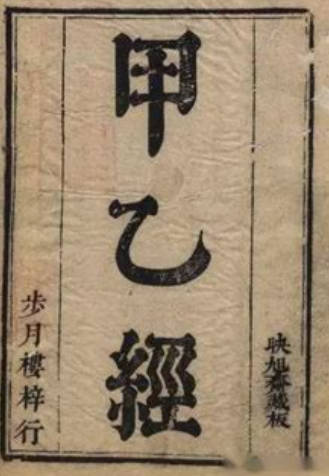 映旭齋藏板
甲乙經
步月樓梓行